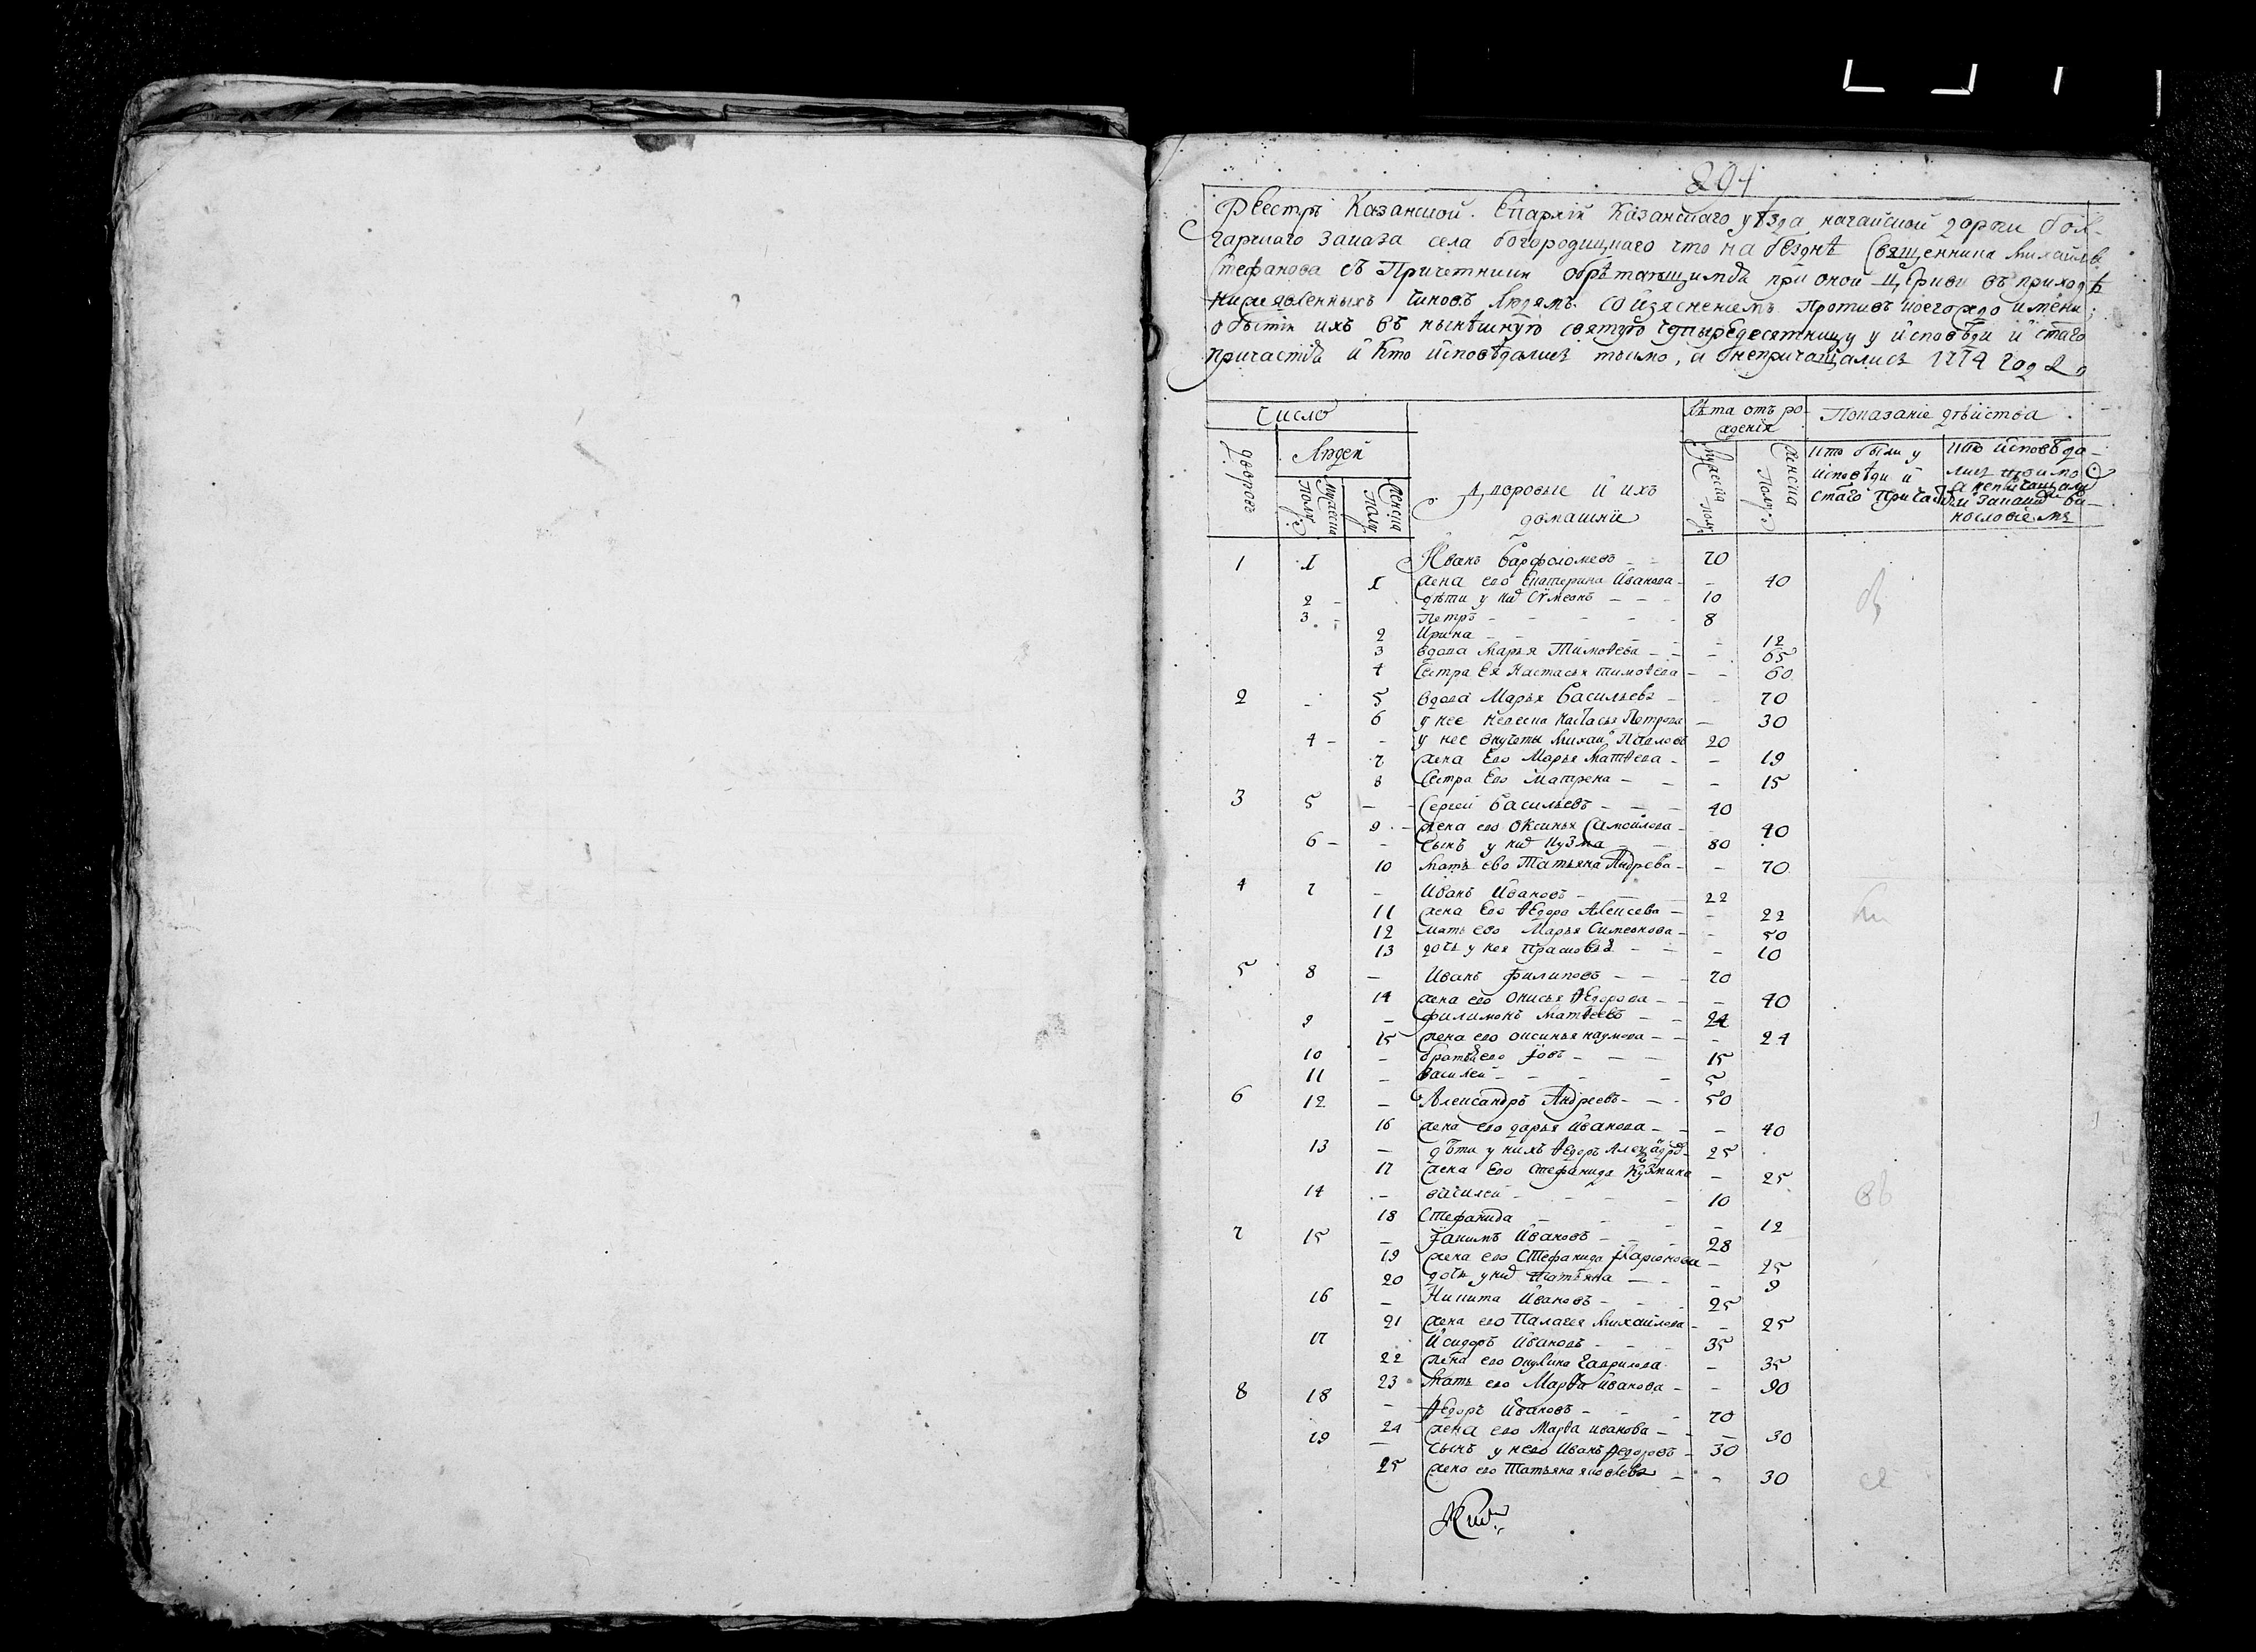 894
Реестръ Казанской Епархiи Казанскаго уѣзда нагайской дороги бол-
гарскаго заказа села богородицкаго что на безднѣ Священника Михаила
Стефанова съ Причетники обрѣтающимся при оной Церкви въ приходѣ
нижеявленныхъ чиновъ людямъ со изясненiемъ Противъ коегождо имени,
о бытiи ихъ въ нынѣшнюю святую четыредесятницу у исповѣди и стаго
причастiя и кто исповѣдались токмо, а непричащались 1774 году
Число
лѣта отъ ро-
жденiя
Показанiе дѣйства
дворовъ
Людей
мужеска полу
женска полу
Дворовые и ихъ
домашнiе
мужеска полу
женска полу
кто были у
исповѣди и
стаго причастiя
кто исповѣда-
лись токмо
1 1 Иванъ Варфоломеевъ - - 70
1 жена ево Екатерина Иванова - - 40
2 - дѣти у нихъ Сѵмеонъ - - - 10
3 - Петръ - - - - - 8
2 Ирина - - - - 12
3 вдова Марья Тимоѳеева - - - 65
4 Сестра Ея Настасья тимоѳеева - - 60
2 - 5 вдова Марья Васильева - - 70
6 у нее невеска настасья Петрова - 30
4 - - у нее внучеты Михаи Павловъ 20
7 жена Ево Марья Матѳеева - - 19
8 Сестра Ево Матрена - - - 15
3 5 - - Сергей Васильевъ - - - 40
9 - жена ево Оксинья Самойлова - - 40
6 - - Сынъ у них Кузма - - 80
10 мать ево Татьяна Андрѣева - - 70
4 7 - Иванъ Ивановъ - - - 22
11 жена Ево Ѳедора Алексеева - - 22
12 мать ево Марья Симеонова - - 50
13 дочь у нея Прасковья - - - 10
5 8 - Иванъ Филиповъ - - - 70
14 жена ево Онисья Ѳедорова - - - 40
9 - Филимонъ Матвеевъ - - 24
15 жена ево оксинья наумова - - - 24
10 - братья ево Iовъ - - - 15
11 - Василей - - - - 5
6 12 - Александръ Андреевъ - - - 50
16 жена ево дарья Иванова - - - 40
13 - дѣти у нихъ Ѳедоръ Александровъ 25
17 жена Ево Стефанида Кузмина - 25
14 - василей - - - - 10
18 Стефанида - - - - 12
7 15 - Iакимъ Ивановъ - - - 28
19 жена ево Стефанида Ларионова - 25
20 дочь у них Татьяна - - - 9
16 - Никита Ивановъ - - - 25
21 жена ево Палагея Михайлова - - 25
17 Исидоръ Ивановъ - - - 35
22 жена ево Окулина Гаврилова - 35
23 мать ево Марѳа Иванова - - 90
8 18 - Ѳедоръ Ивановъ - - - 70
24 жена ево Марѳа иванова - - - 30
19 - Сынъ у него Иванъ Ѳедоровъ - 30
25 жена ево Татьяна яковлева - - 30